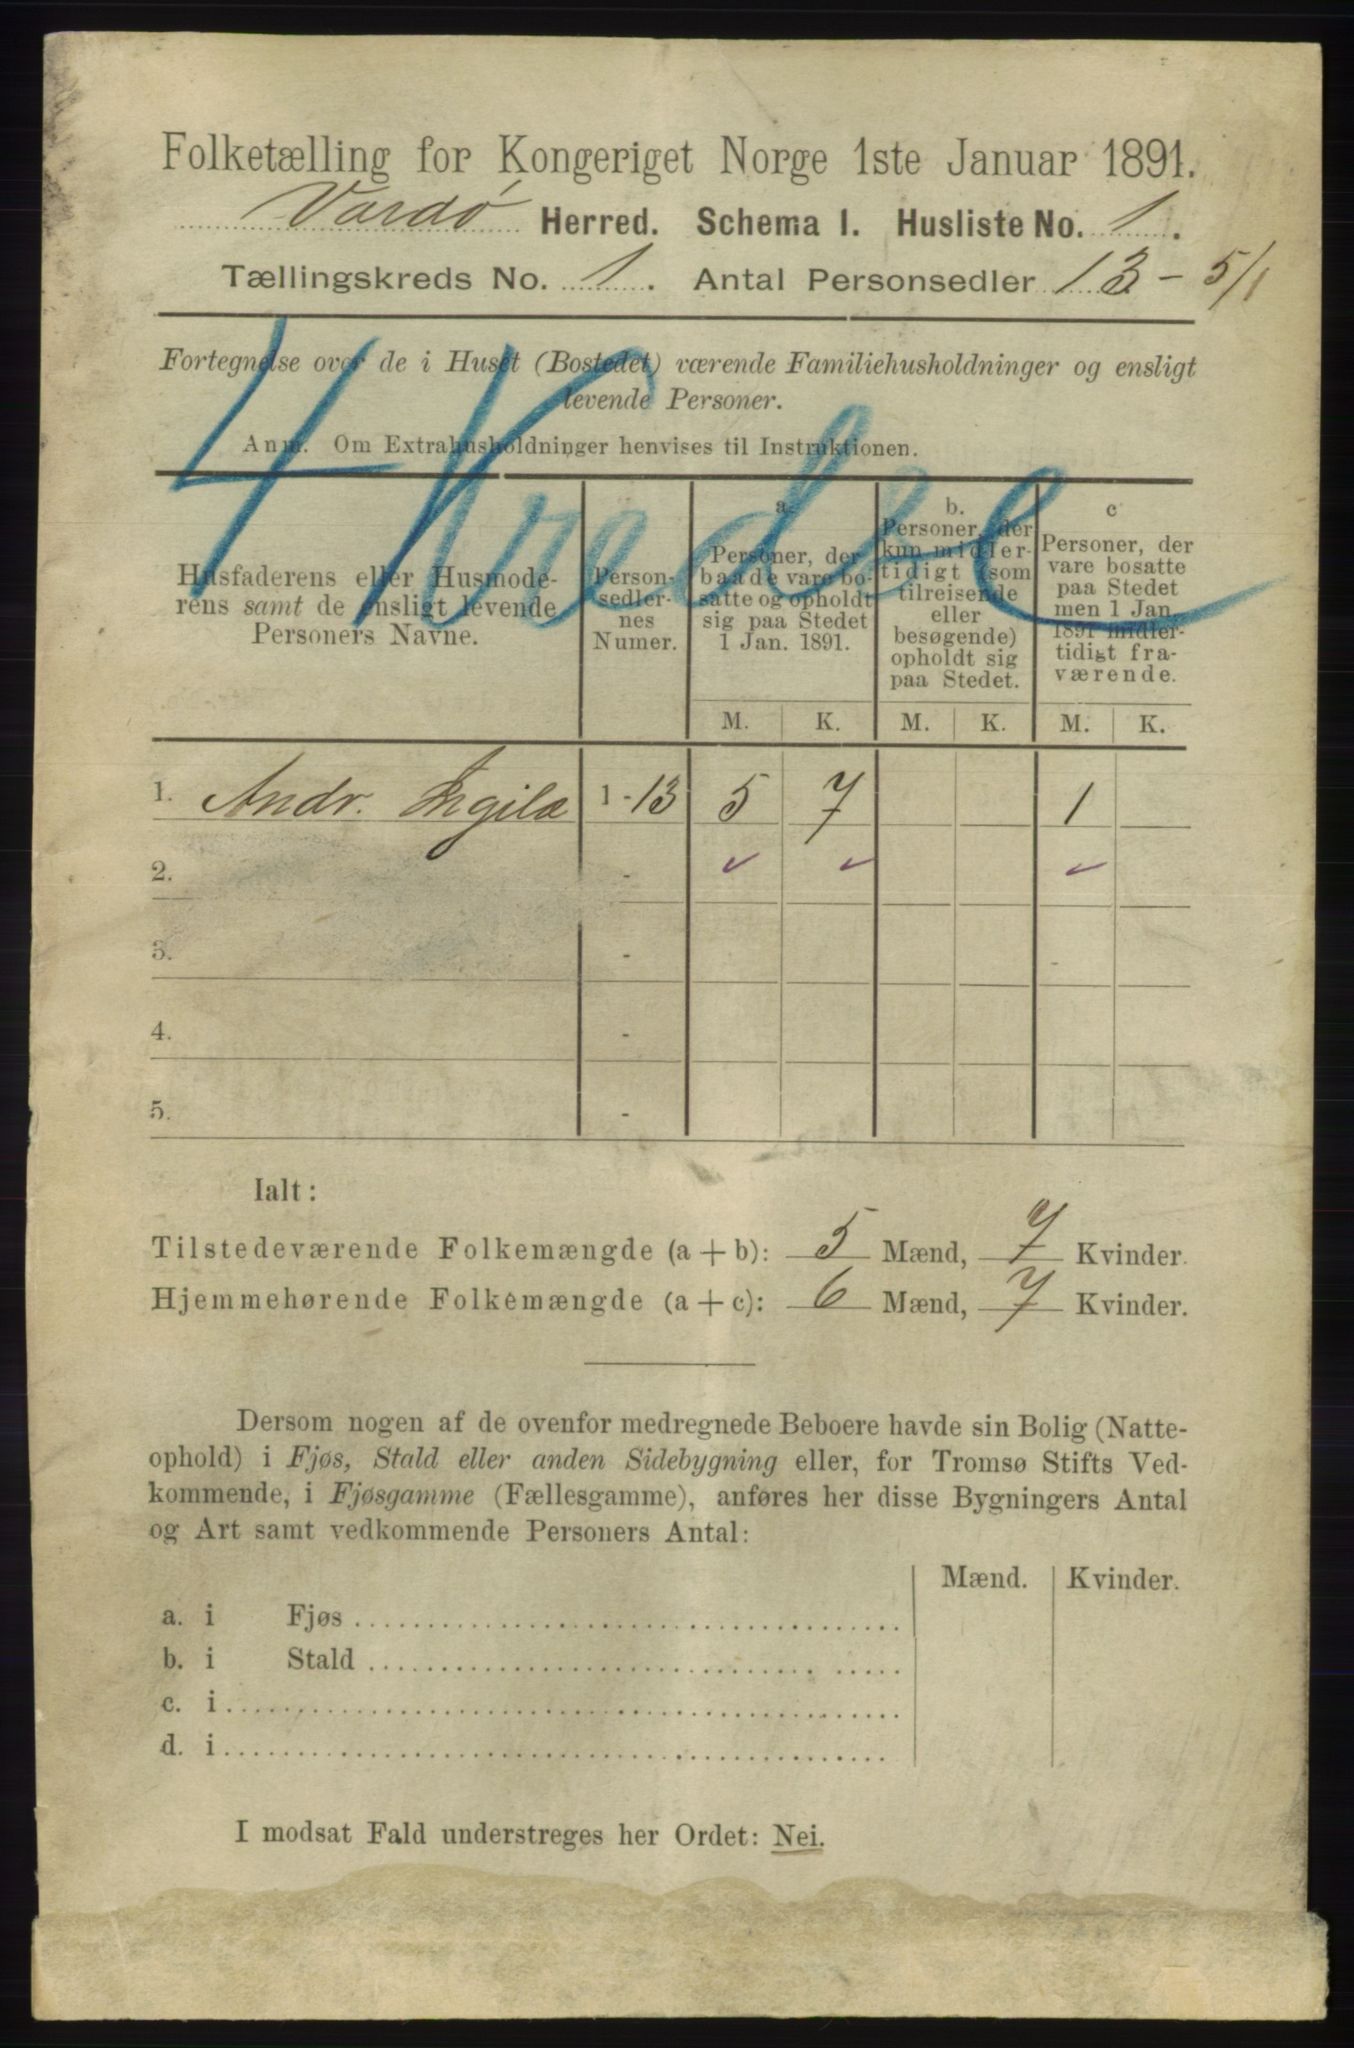 Folketælling for Kongeriget Norge 1ste Januar 1891.
Vardø Herred. Schema I. Husliste No. 1.
Tællingskreds No. 1. Antal Personsedler 13 - 5/1
4 Kreds
Fortegnelse over de i Huset (Bostedet) værende Familiehusholdninger og ensligt
levende Personer.
Anm. Om Extrahusholdninger henvises til Instruktionen.
Husfaderens eller Husmode-
rens samt de ensligt levende
Personers Navne.
Person-
sedler-
nes
Numer.
a.
Personer, der
baade vare bo-
satte og opholdt
sig paa Stedet
1 Jan. 1891.
b.
Personer, der
kun midler-
tidigt (som
tilreisende
eller
besøgende)
opholdt sig
paa Stedet.
c
Personer, der
vare bosatte
paa Stedet
men 1 Jan.
1891 midler-
tidigt fra-
værende.
M. K. M. K. M. K.
1. Andr. Ingila 1-13 5 7 1
2. - ✓ ✓ ✓
3. -
4. -
5. -
Ialt:
Tilstedeværende Folkemængde (a + b): 5 Mænd, 7 Kvinder.
Hjemmehørende Folkemængde (a + c): 6 Mænd, 7 Kvinder.
Dersom nogen af de ovenfor medregnede Beboere havde sin Bolig (Natte-
ophold) i Fjøs, Stald eller anden Sidebygning eller, for Tromsø Stifts Ved-
kommende, i Fjøsgamme (Fællesgamme), anføres her disse Bygningers Antal
og Art samt vedkommende Personers Antal:
Mænd. Kvinder.
a. i Fjøs
b. i Stald
c. i
d. i
I modsat Fald understreges her Ordet: Nei.